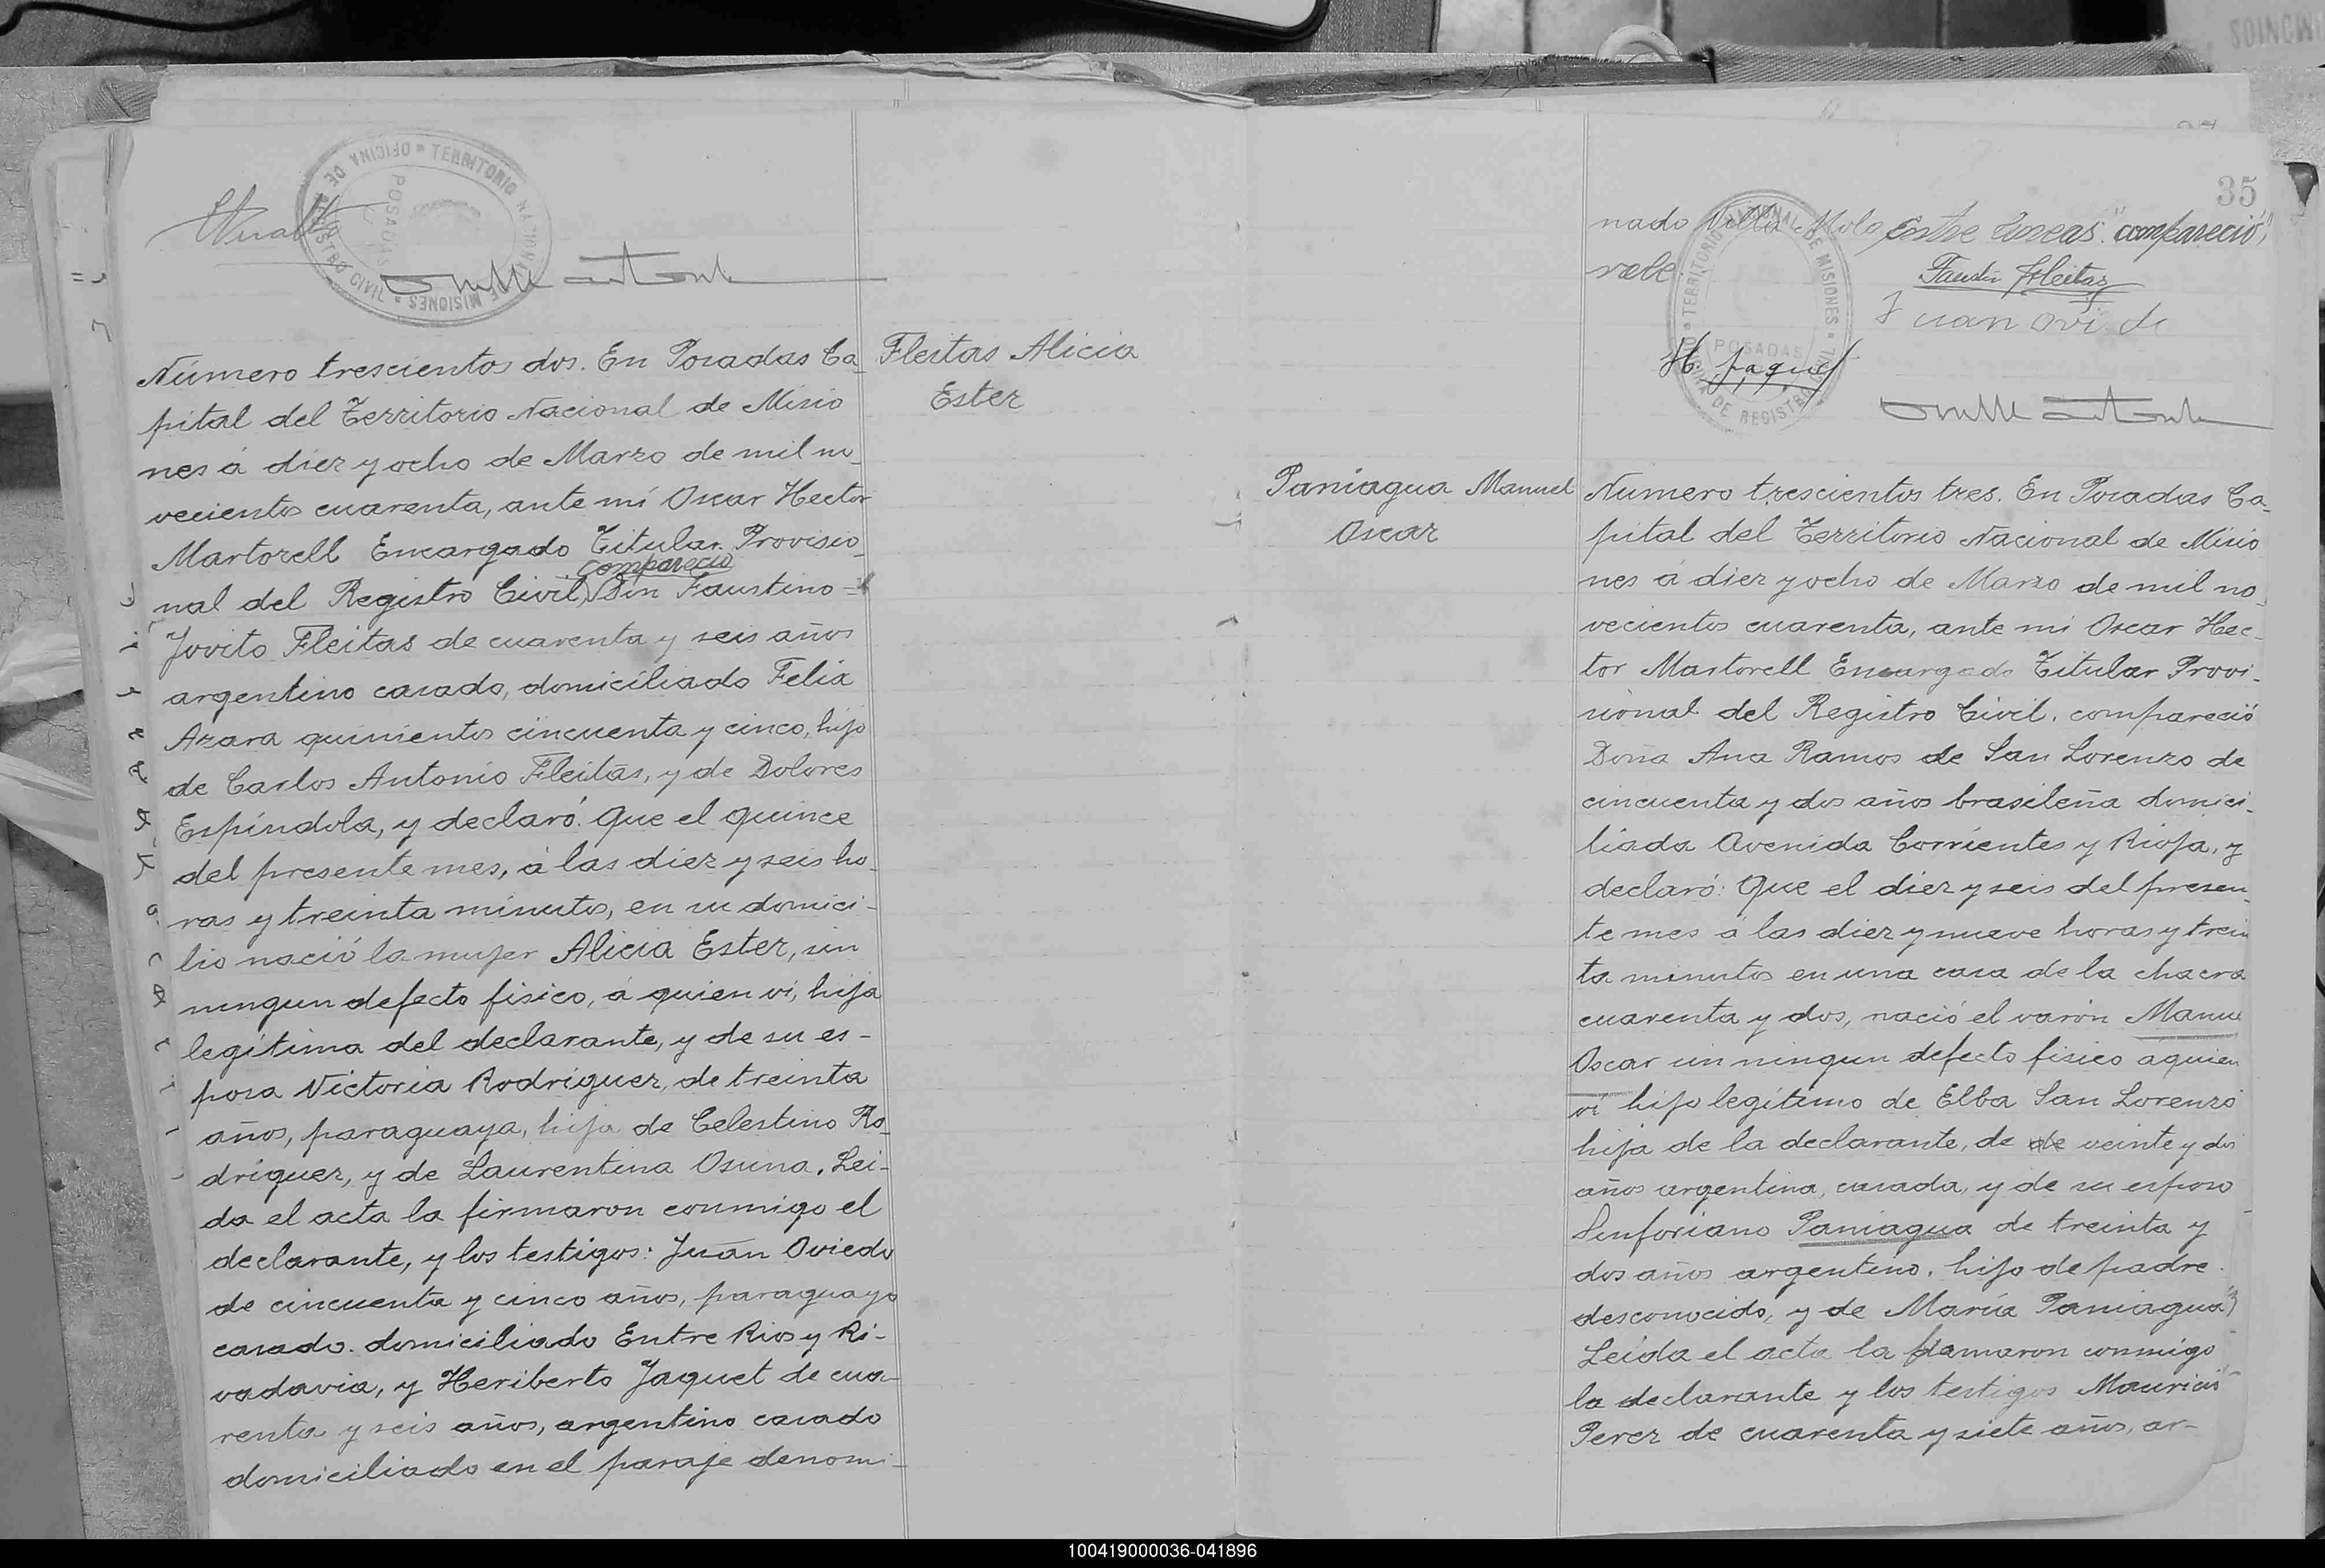 OFICINA DE REGISTRO CIVIL
TERRITORIO NACIONAL DE MISIONES
POSADAS
Número trescientos dos. En Posadas Ca
pital del Territorio Nacional de Misio
nes á diez y ocho de Marzo de mil no_
vecientos cuarenta, ante mí Oscar Hector
Martorell Encargado Titular Provisio_
compareció
nal del Registro Civil, Don Faustino =
Jovito Fleitas de cuarenta y seis años
argentino casado, domiciliado Felix
Azara quinientos cincuenta y cinco, hijo
de Carlos Antonio Fleitas, y de Dolores
Espíndola, y declaró: Que el quince
del presente mes, á las diez y seis ho_
ras y treinta minutos, en su domici-
lio nació la mujer Alicia Ester, sin
ningun defecto físico, á quien vi, hija
legítima del declarante, y de su es-
posa Victoria Rodríguez, de treinta
años, paraguaya, hija de Celestino Ro_
dríguez, y de Laurentina Osuna. Leí-
da el acta la firmaron conmigo el
declarante, y los testigos: Juan Oviedo
de cincuenta y cinco años, paraguayo
casado. domiciliado Entre Rios y Ri-
vadavia, y Heriberto Jaquet de cua_
renta y seis años, argentino casado
domiciliado en el paraje denomi_
Fleitas Alicia
Ester
35
nado Villa Mola Entre líneas "compareció"
vale.
Faustin Fleitas
Juan Ovi do
H. Jaquet
TERRITORIO NACIONAL DE MISIONES
OFICINA DE REGISTRO CIVIL
POSADAS
Paniagua Manuel
Oscar
Numero trescientos tres. En Posadas Ca_
pital del Territorio Nacional de Misio
nes á diez y ocho de Marzo de mil no_
vecientos cuarenta, ante mi Oscar Hec-
tor Martorell Encargado Titular Provi_
sional del Registro Civil. compareció
Doña Ana Ramos de San Lorenzo de
cincuenta y dos años brasileña domici_
liada Avenida Corrientes y Rioja, y
declaró: Que el diez y seis del presen_
te mes á las diez y nueve horas y trein
ta minutos en una casa de la chacra
cuarenta y dos, nació el varón Manue
Oscar sin ningun defecto físico a quien
vi hijo legítimo de Elba San Lorenzo
hija de la declarante, de de veinte y dos
años argentina, casada, y de su esposo
Sinforiano Paniagua de treinta y
dos años argentino. hijo de padre
desconocido, y de María Paniagua
Leída el acta la firmaron conmigo
la declarante y los testigos Mauricio
Perez de cuarenta y siete años, ar-
100419000036-041896